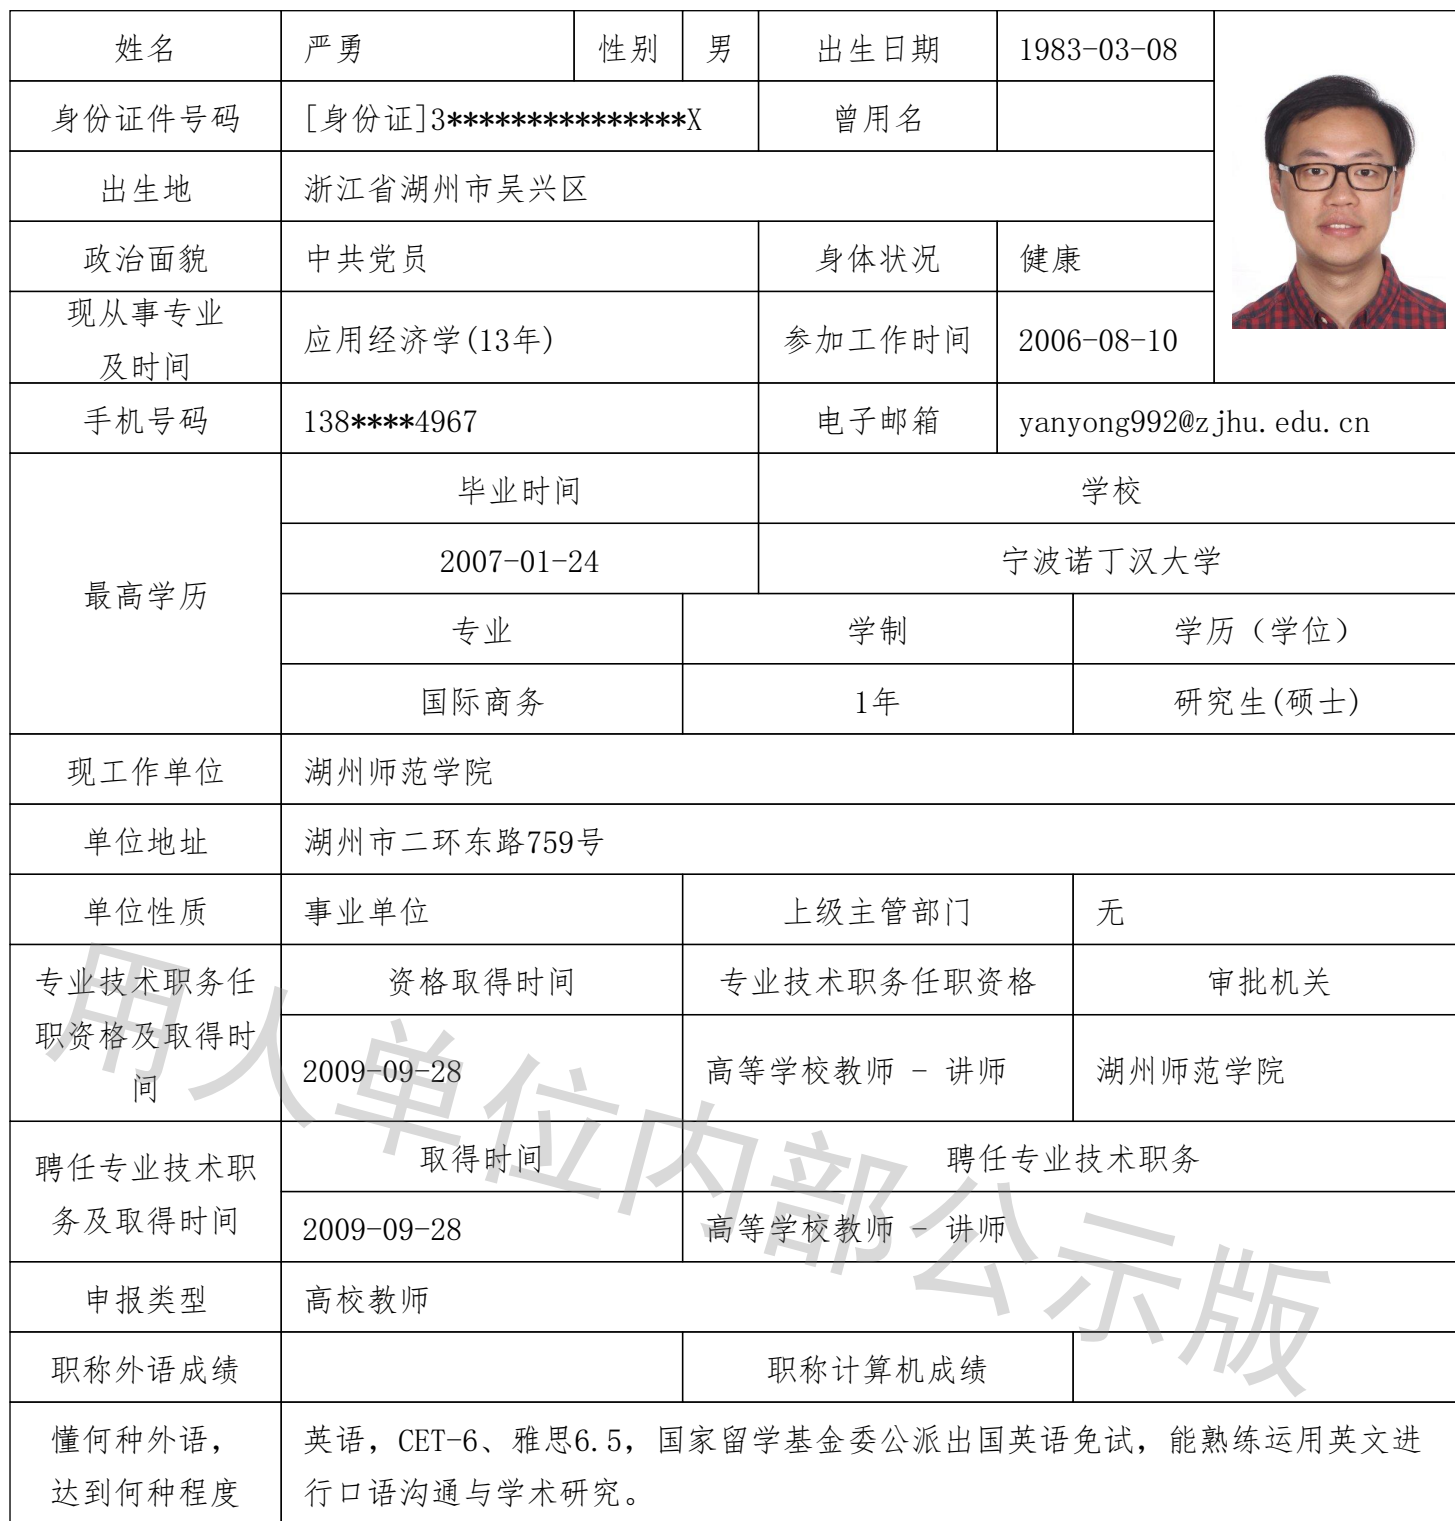 姓名 严勇 性别 男 出生日期 1983-03-08
身份证件号码 [身份证]3***************X 曾用名
出生地 浙江省湖州市吴兴区
政治面貌 中共党员 身体状况 健康
现从事专业
及时间 应用经济学(13年) 参加工作时间 2006-08-10
手机号码 138****4967 电子邮箱 yanyong992@zjhu.edu.cn
最高学历
毕业时间 学校
2007-01-24 宁波诺丁汉大学
专业 学制 学历（学位）
国际商务 1年 研究生(硕士)
现工作单位 湖州师范学院
单位地址 湖州市二环东路759号
单位性质 事业单位 上级主管部门 无
专业技术职务任
职资格及取得时
间
资格取得时间 专业技术职务任职资格 审批机关
2009-09-28 高等学校教师 - 讲师 湖州师范学院
聘任专业技术职
务及取得时间
取得时间 聘任专业技术职务
2009-09-28 高等学校教师 - 讲师
申报类型 高校教师
职称外语成绩 职称计算机成绩
懂何种外语，
达到何种程度
英语，CET-6、雅思6.5，国家留学基金委公派出国英语免试，能熟练运用英文进
行口语沟通与学术研究。
用人单位内部公示版